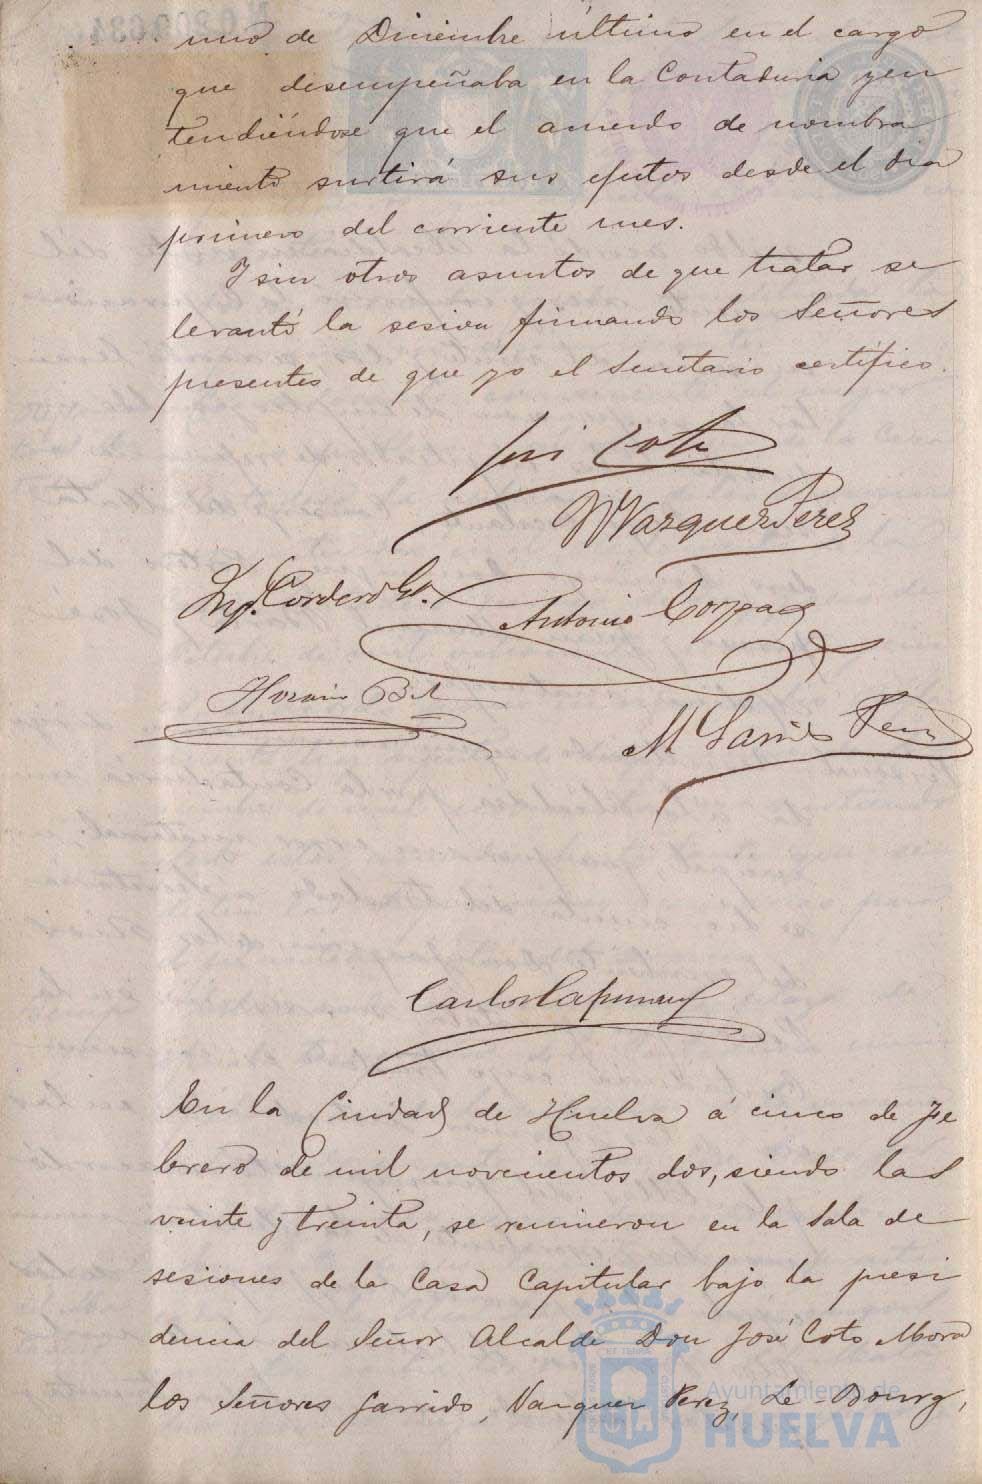 uno de Diciembre último en el cargo
que desempeñaba en la Contaduria y en
tendiéndose que el acuerdo de nombra
miento surtirá sus efectos desde el dia
primero del corriente mes.
Y sin otros asuntos de que tratar se
levantó la sesion firmando los Señores
presentes de que yo el Secretario certifico.
José Coto
M Vazquez Perez
Antonio Corpas
M Garrido Perez
En la Ciudad de Huelva á cinco de Fe
brero de mil novecientos dos, siendo las
veinte y treinta, se reunieron en la Sala de
sesiones de la Casa Capitular bajo la presi
dencia del Señor Alcalde Don José Coto Mora
los Señores Garrido, Vazquez Perez, Le-Bourg,
Ayuntamiento de
HUELVA